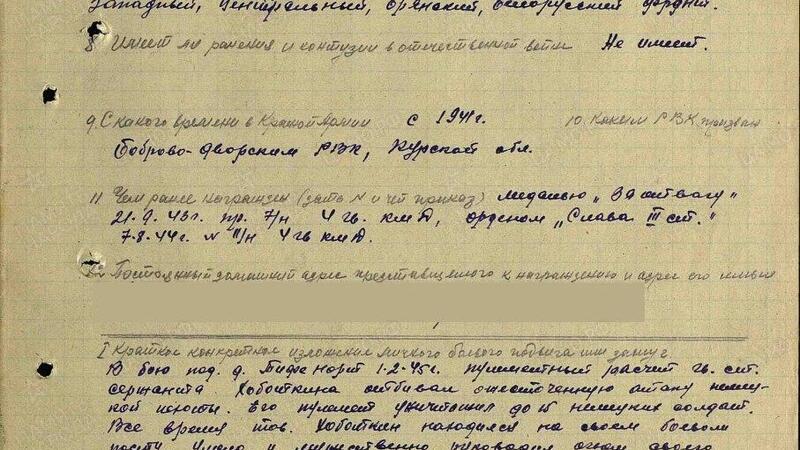 Западный, Центральный, Брянский, Белорусский фронт.
8. Имеет ли ранения и контузии в отечественной войне Не имеет.
9. С какого времени в Красной Армии с 1941г. 10. Каким РВК призван
Боброво-Дворским РВК, Курской обл.
11 Чем ранее награжден (дата N и чей приказ) медалью „За отвагу"
21.9.43г. пр. 7/н 4 гв. кмД, орденом „Слава III ст."
7.8.44г. N 11/н 4 гв кмД.
12 Постоянный домашний адрес представляемого к награждению и адрес его семьи
I Краткое конкретное изложение личного боевого подвига или заслуг
В бою под д. 1-2-45г. пулеметный расчет гв. ст.
сержанта Хоботкина отбивал ожесточенную атаку немец-
кой пехоты. Его пулемет уничтожил до 15 немецких солдат.
Все время тов. Хоботкин находился на своем боевом
посту умело и мужественно руководил огнем своего